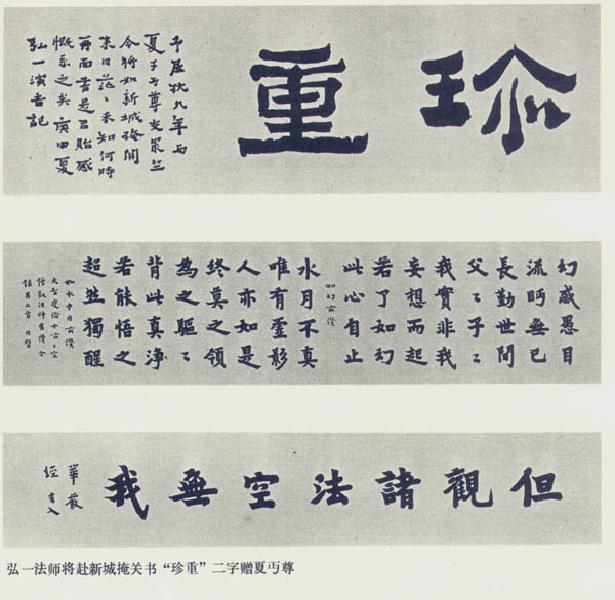 珍重
予居杭九年与
夏子丏尊交最竺
今將如新城掩關
來日茫茫未知何時
再面書是㠯貽感
慨系之矣庚申夏
弘一演音記
幻惑愚目
流眄無已
長勤世間
父〻子〻
我實非我
妄想而起
若了如幻
此心自止
如幻玄讚
水月不真
唯有虛影
人亦如是
終莫之領
為之驅〻
背此真淨
若能悟之
超然獨醒
如水中月玄讚
但觀諸法空無我
華嚴
經
弘一法师将赴新城掩关书“珍重”二字赠夏丏尊